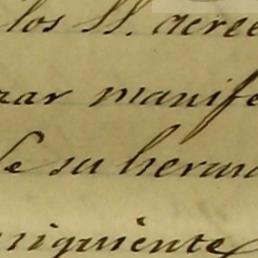 los SS. acree
rar manife
de su herma
niguiente